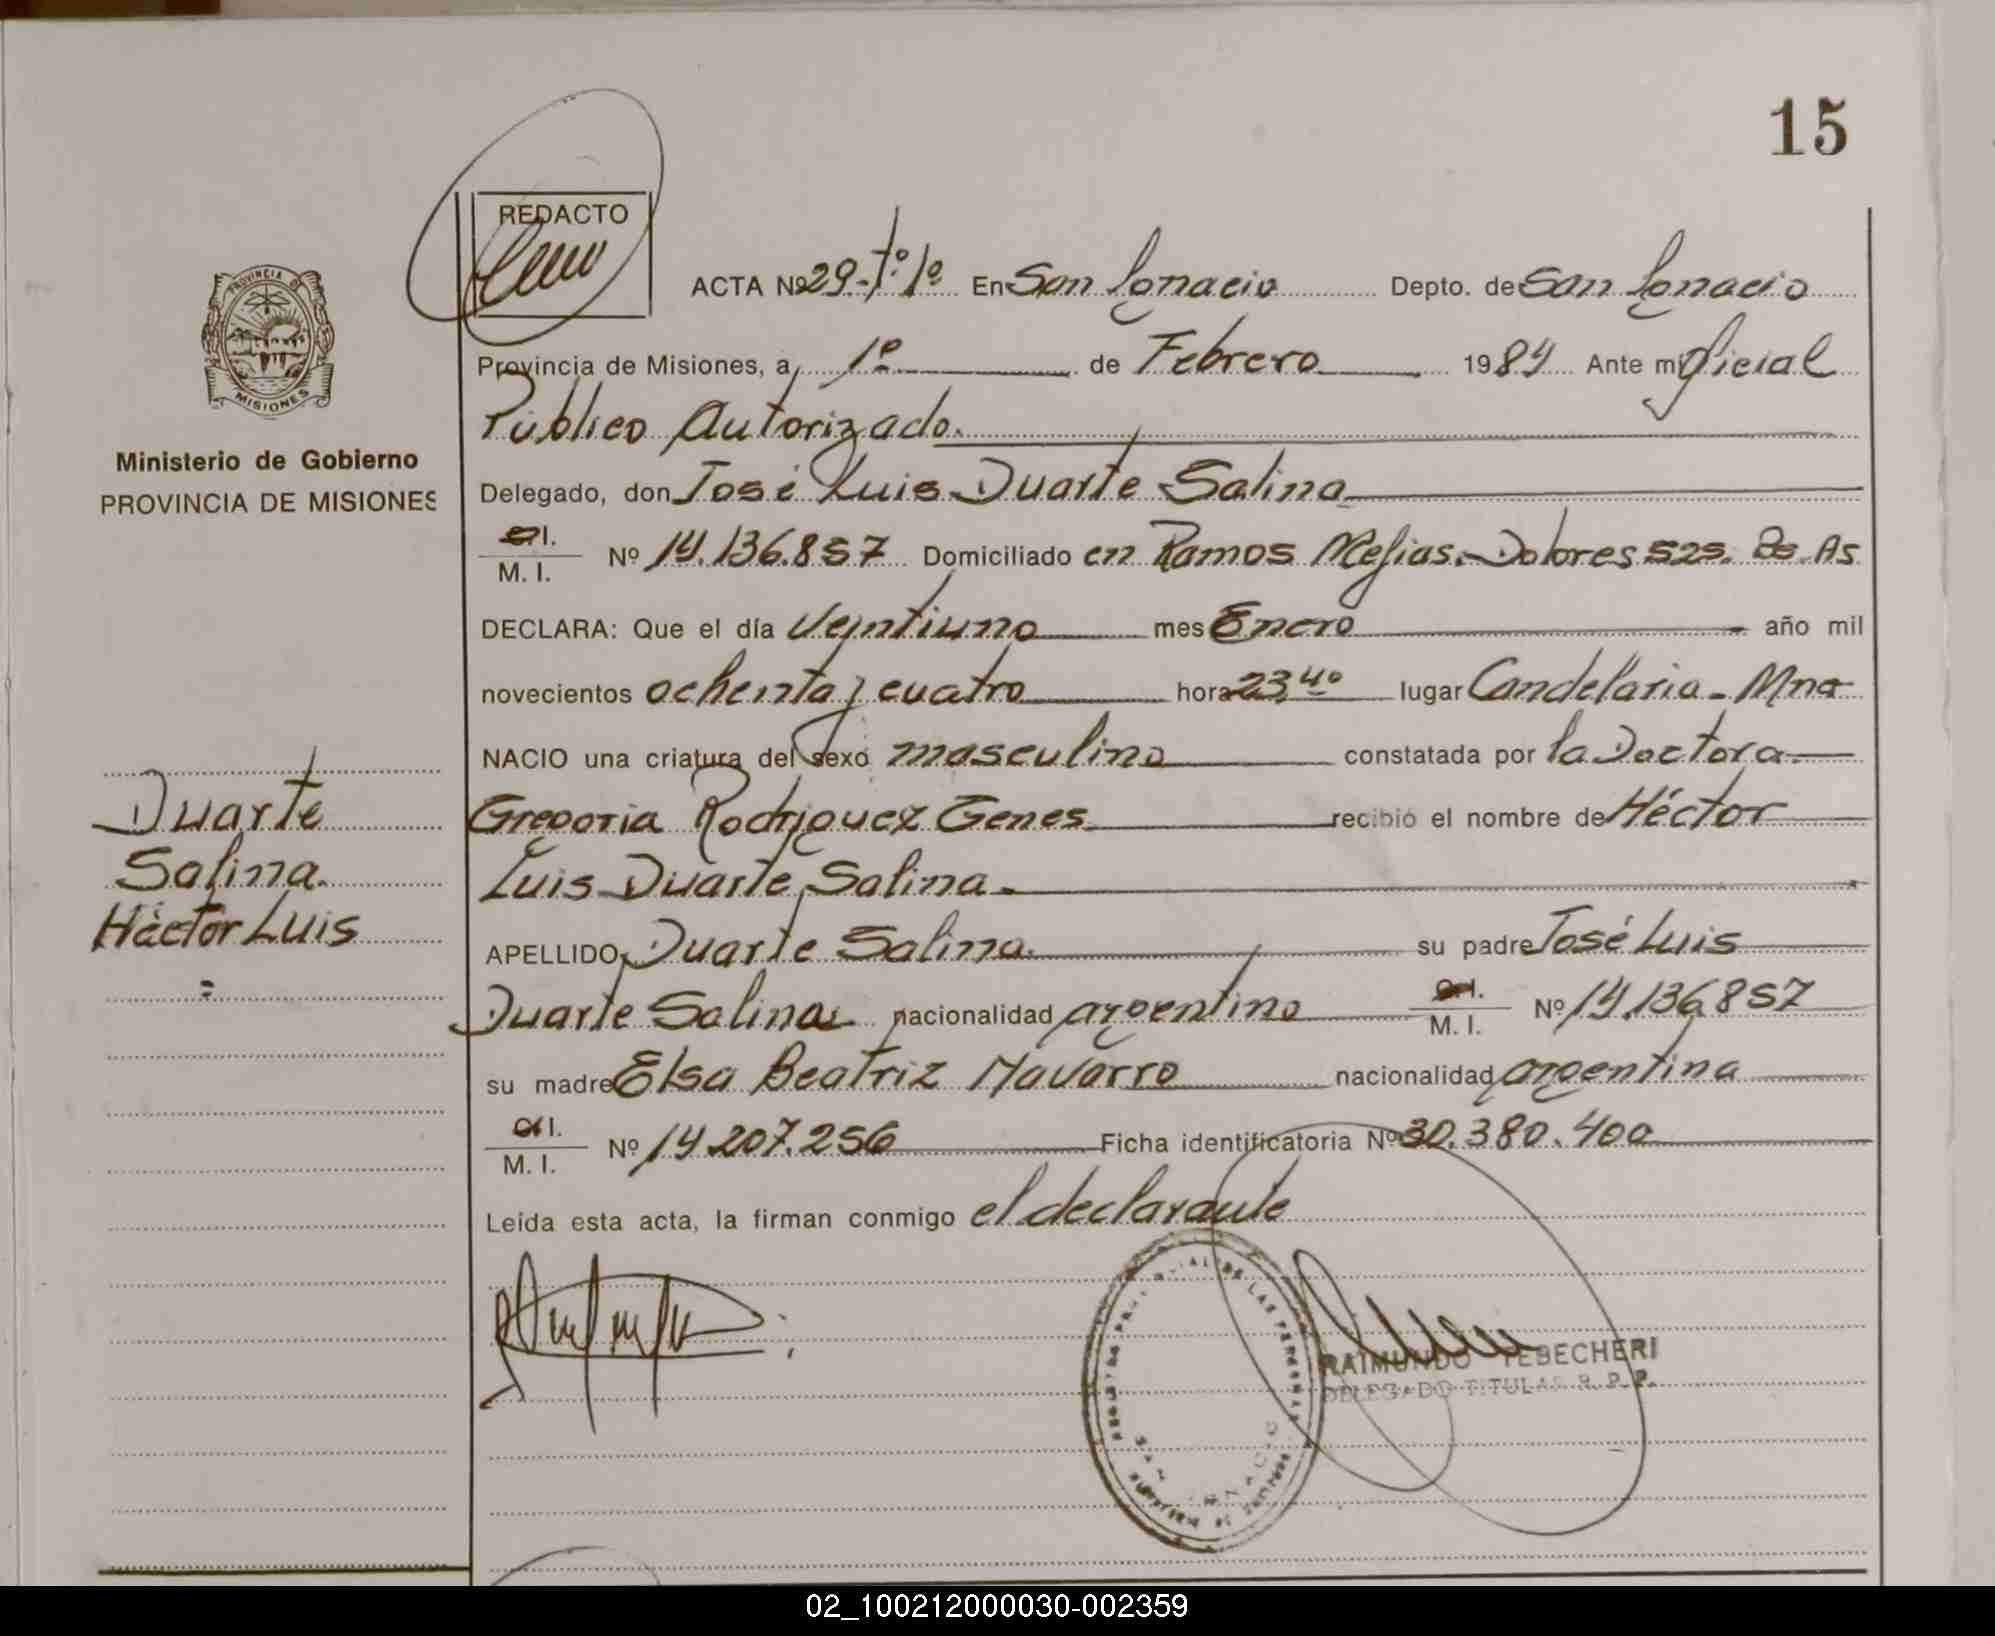 15
REDACTO
ACTA Nº 29-Tº 1º En San Ignacio Depto. de San Ignacio
Provincia de Misiones, a 1º de Febrero 1984 Ante mi Oficial
Público Autorizado.
Delegado, don José Luis Duarte Salina
C.I.
M. I. Nº 14.136.857 Domiciliado en Ramos Mejias. Dolores 525. Bs. As
DECLARA: Que el día Veintiuno mes Enero año mil
novecientos ochenta y cuatro hora 23,40 lugar Candelaria - Mna
NACIO una criatura del sexo masculino constatada por la Doctora
Gregoria Rodriguez Genes recibió el nombre de Héctor
Luis Duarte Salina
APELLIDO Duarte Salina su padre José Luis
Duarte Salina nacionalidad argentino
C.I.
M. I. Nº 14.136.857
su madre Elsa Beatriz Navarro nacionalidad argentina
C.I.
M. I. Nº 14.207.256 Ficha identificatoria Nº 30.380.400
Leída esta acta, la firman conmigo el declarante
PROVINCIA DE
MISIONES
Ministerio de Gobierno
PROVINCIA DE MISIONES
Duarte
Salina
Héctor Luis
DE LAS PERSONAS
SAN IGNACIO
RAIMUNDO TEBECHERI
DELEGADO TITULAR R. P. P.
02_100212000030-002359